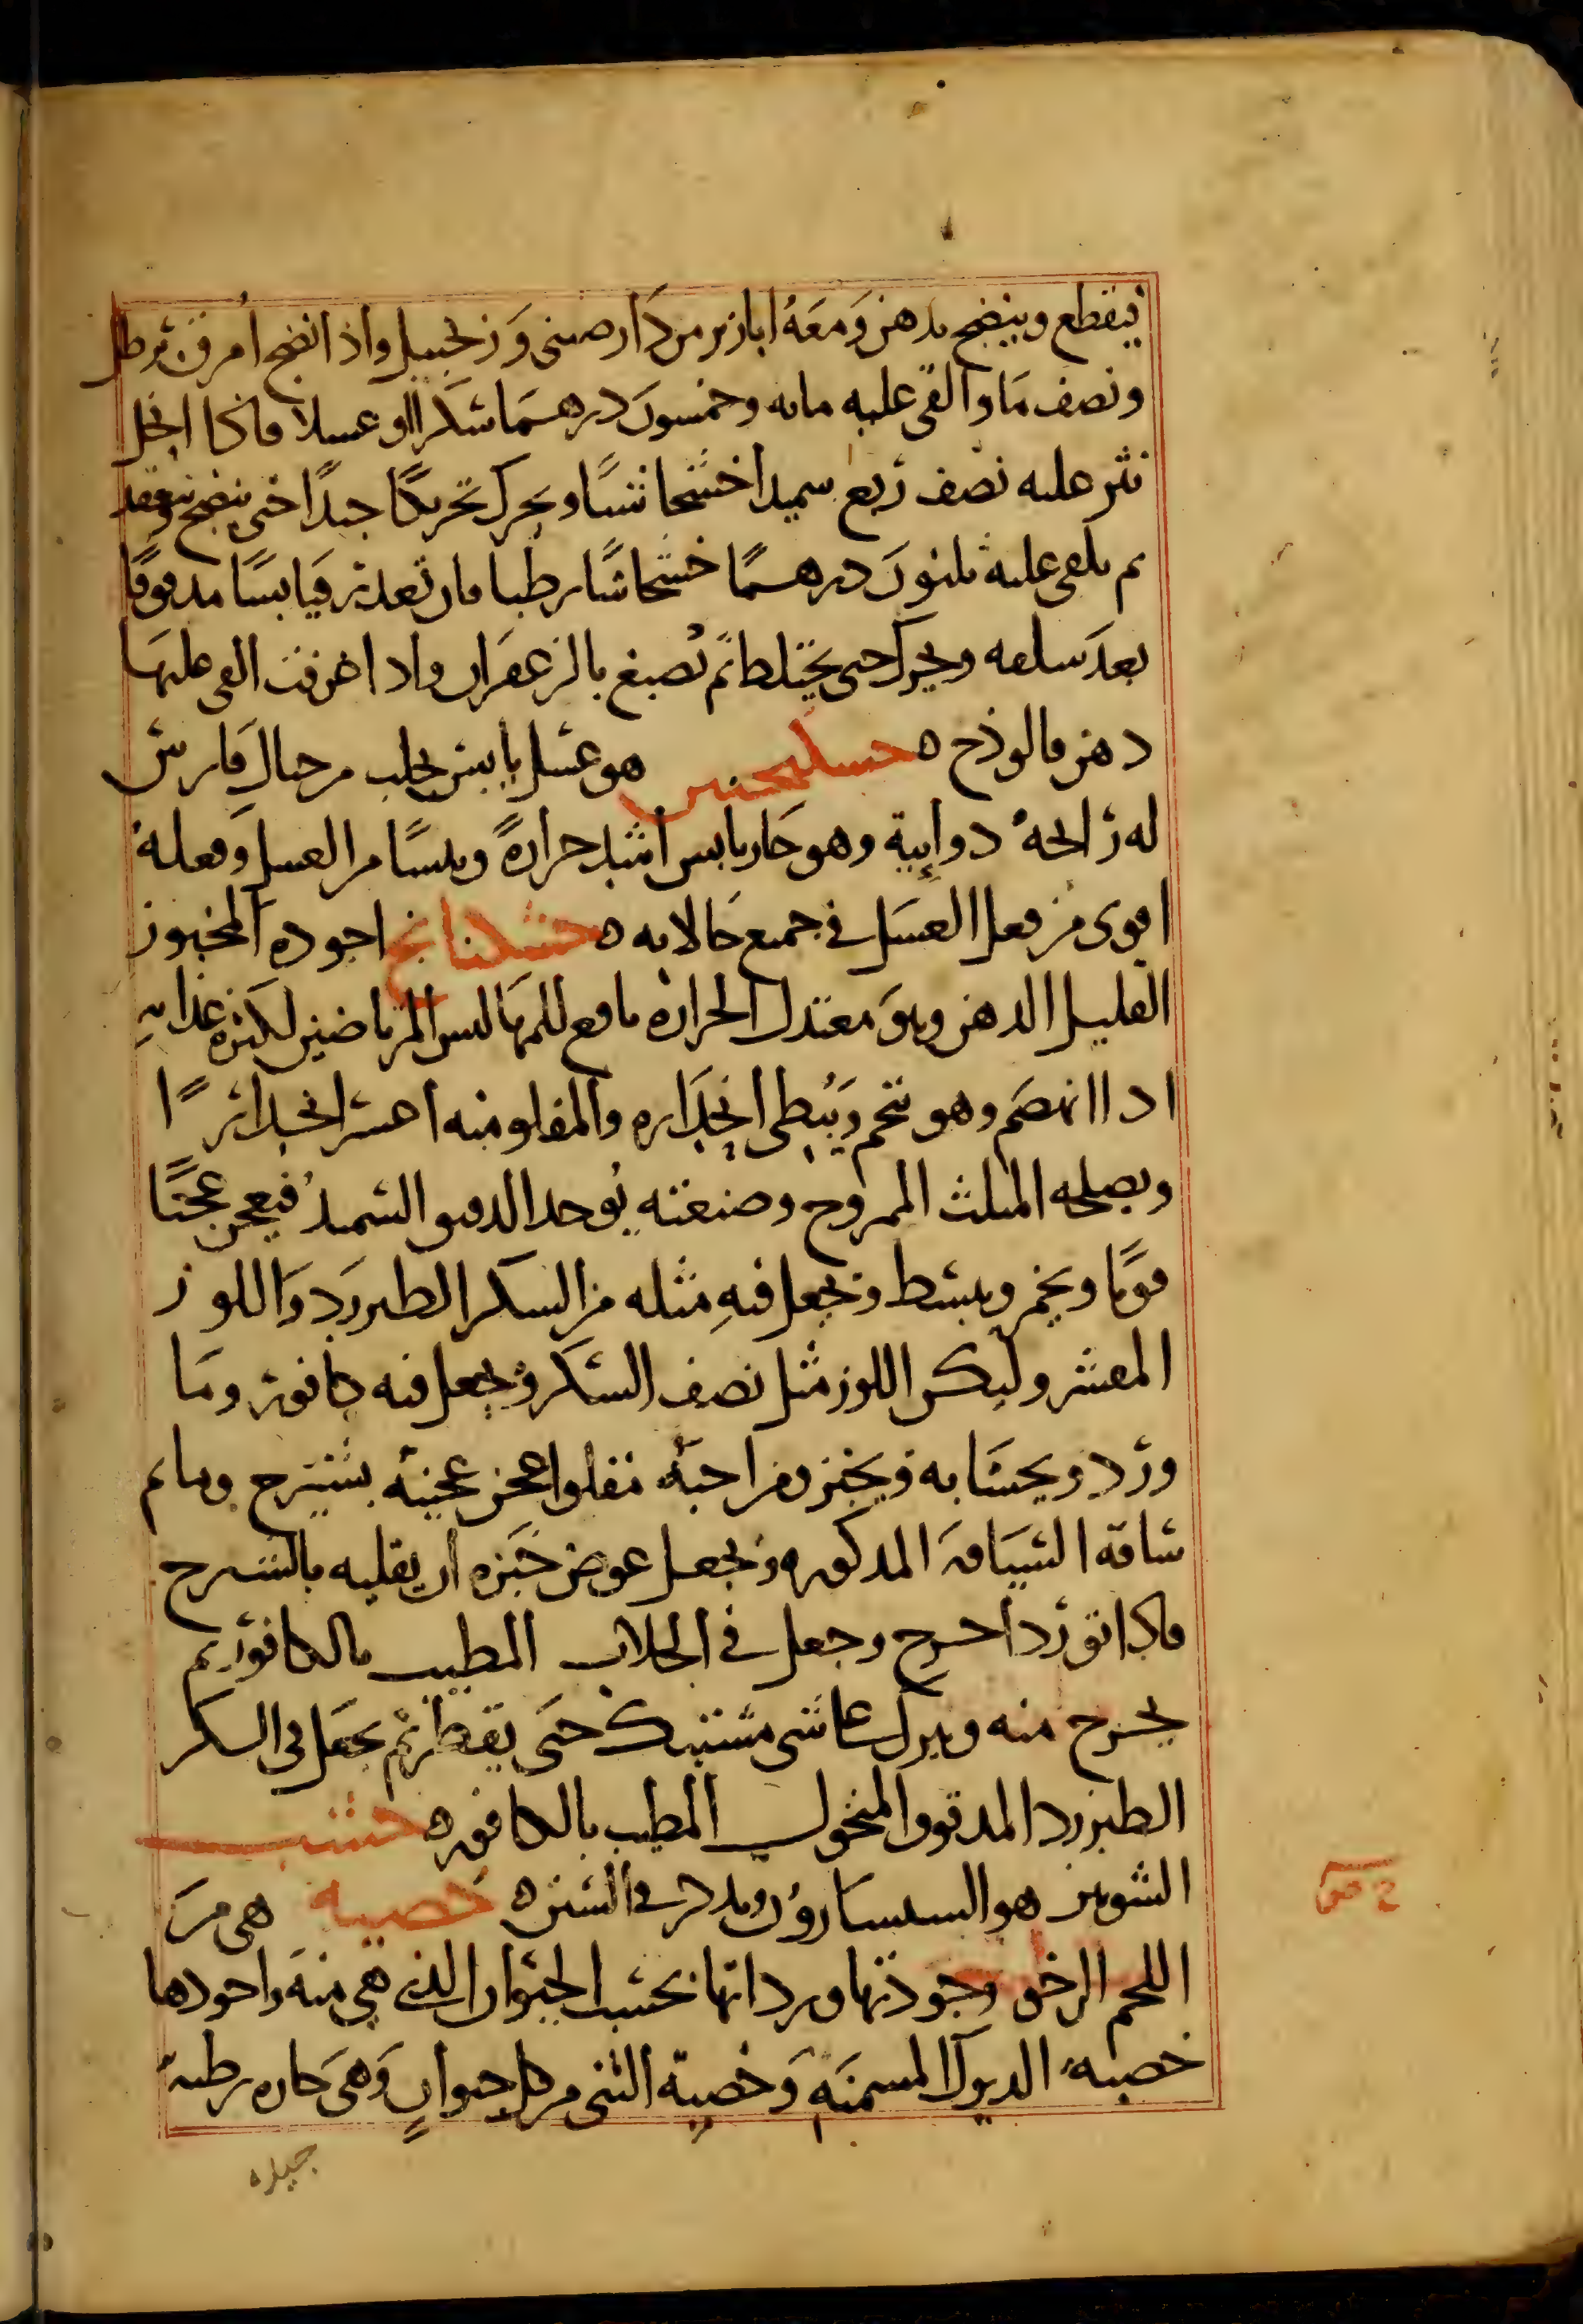 فيقطع وينضج بدهن ومعه ابازير من دَارصيني وَزنجبيل واذا نضج امرق برطل
ونصف مَا والقى عليه مايه وخمسون درهمَا سكرا او عسلا فاذا انحل
نثر عليه نصف ربع سميدا خشخاشيًا ويحرك تحريكًا جيدًا حتى ينضج وينعقد
ثم يلقى عليه ثلثون درهمًا خشخاشًا رطبا فان تعذر فيابسًا مدقوقًا
بعد سلقه ويحرك حتى يختلط ثم تصبغ بالزعفران واذا غرفت القى عليهَا
دهن فالوذج ه هو عسل يابس يجلب من جبال فَارس
له رائحة دوايية وهو حَار يابس اشد حرارةً ويبسًا من العسل وفعله
اقوى من فعل العسَل في جميع حَالاته ه خشكنانج اجوده المخبوز
القليل الدهن وهوَ معتدل الحرارة نافع للمرتاضين لكثرة غذايهِ
اذا انهضَم وهو يتخم وَيُبطى انحِدَاره والمقلو منه اعسر انحدارًا
ويصلحه المثلث الممزوج وصنعته يُوخذ الدقيق السميد فيعجن عجنًا
قويًا ويخمر ويبسط ويجعل فيهِ مثله من السكر الطبرزد وَاللوز
المقشر وليكن اللوز مثل نصف السكر ويجعل فيه كافور ومَا
ورد ويحشَا به ويخبز ومن احبهُ مقلوا عجن عجينه بشيرج وساير
سَاقه السيَاقهَ المذكوره ويجعل عوض خَبزه ان يقليه بالشيرج
فاذا تورّد اخرج وجعل في الجلاب المطيب بالكافور ثم
يخرج منه ويترك عَلى شى مشتبك حتى يقطر ثم يجعَل في السكر
الطبرزد المدقوق المنخول المطيب بالكافور ه خشب
الشونيز هو السيساروُن ويذكر في السين ه خصيه هي مِنَ
اللحم الرخو وجودتها ورداتها بحسَب الحيوان الذي هي منهَ واجودها
خصيه الديوك المسمنَه وَخصية الفتى من كل حيوانٍ وَهيَ حاره رطبه
جيده